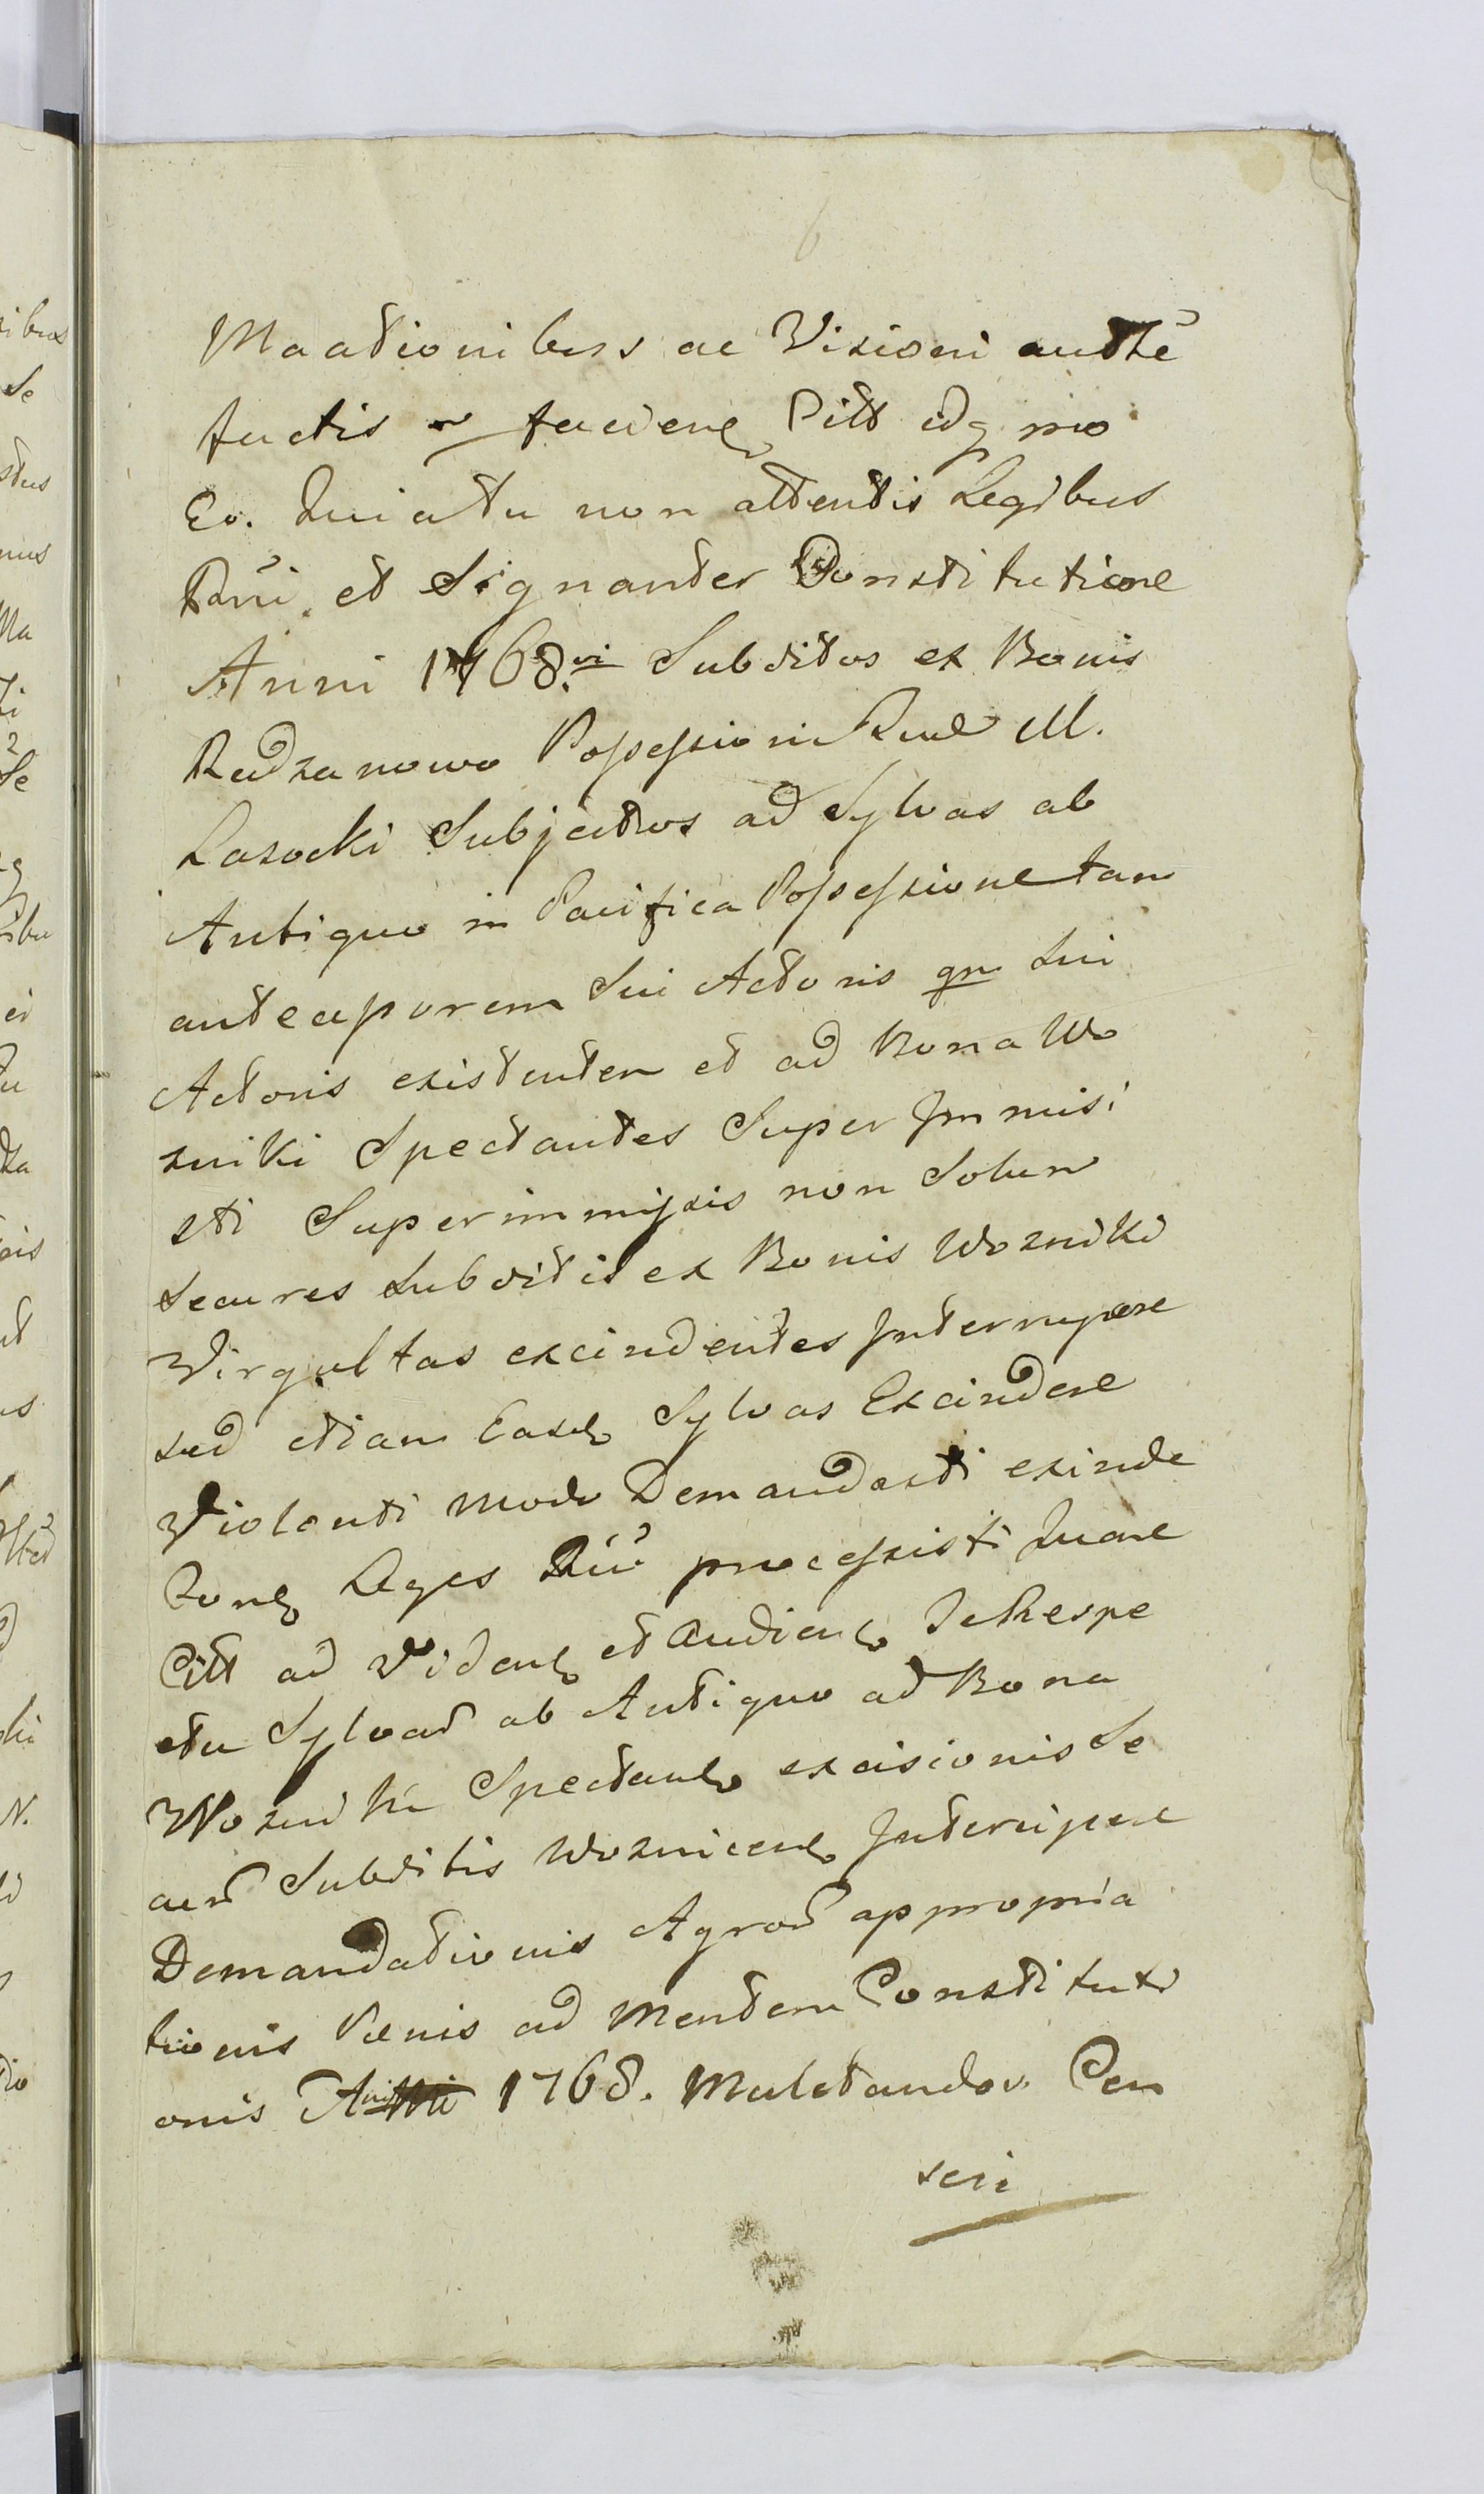 Maationibus ac Visioni authē
factis faciend Citt idq pro
Eo. Quia tu non attentis Legibus
Rñi. et Signanter Constitutione
Anni 1768.vi Subditos ex Bonis
Radzanowo Possessioni Luae M.
Lasocki Subjectos ad Sylvas ab
Antiquo in Pacifica Possessione tam
anteccessorem Sui Actoris qm Sui
Actoris existenten et ad Bona Wo
zniki Spectantes Super Immisi
sti Superimmissis non Solum
Secures Subditis ex Bonis Wozniki
Virgultas excindentes Interrupere
sed etiam Easd Sylvas Excindere
Violenti modo Demandasti exinde
Conq Leges Rñi processisti Quare
Citt ad Vidend et Audiend Te Respe
ctu Sylvar ab Antiquo ad Bona
Wozniki Spectand excisionis Se
cur Subditis Woznicens Interripere
Demandationis Agror appropria
tionis Pœnis ad Mentem Constituti
onis Anni 1768. Mulctandov. Cen
seri